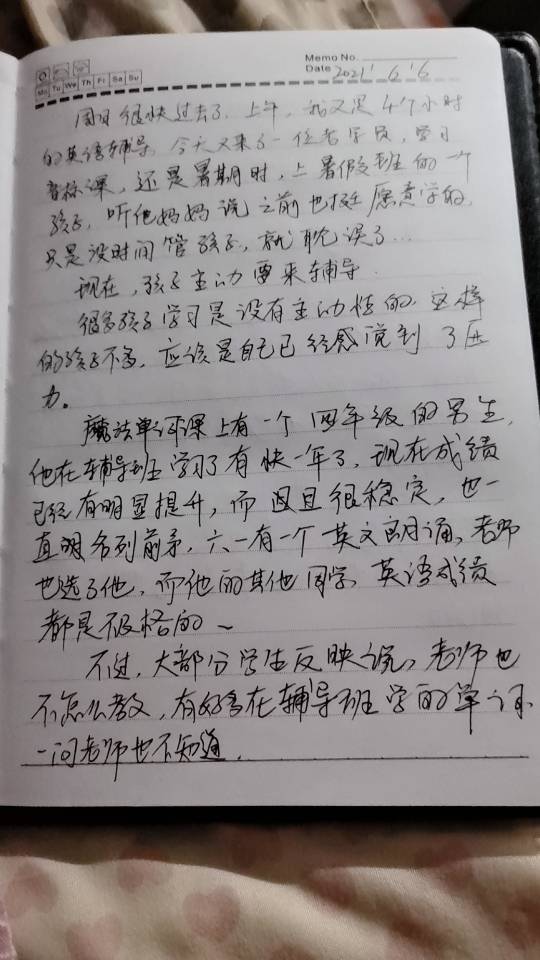 Memo No.
Mo Tu We Th Fr Sa Su
Date 2021' 6' 6
周日很快过去了,上午,我又是4个小时
的英语辅导,今天又来了一位老学员,学习
音标课,还是暑期时,上暑假班的一个
孩子,听他妈妈说之前也挺愿意学的,
只是没时间管孩子,就耽误了…
现在,孩子主动要来辅导.
很多孩子学习是没有主动性的.这样
的孩子不多,应该是自己已经感觉到了压
力。
魔法单词课上有一个四年级的男生,
他在辅导班学习了有快一年了,现在成绩
已经有明显提升,而且很稳定,也一
直名列前茅,六一有一个英文朗诵,老师
也选了他,而他的其他同学,英语成绩
都是不及格的~
不过,大部分学生反映说,老师也
不怎么教,有好多在辅导班学的单词
一问老师也不知道.